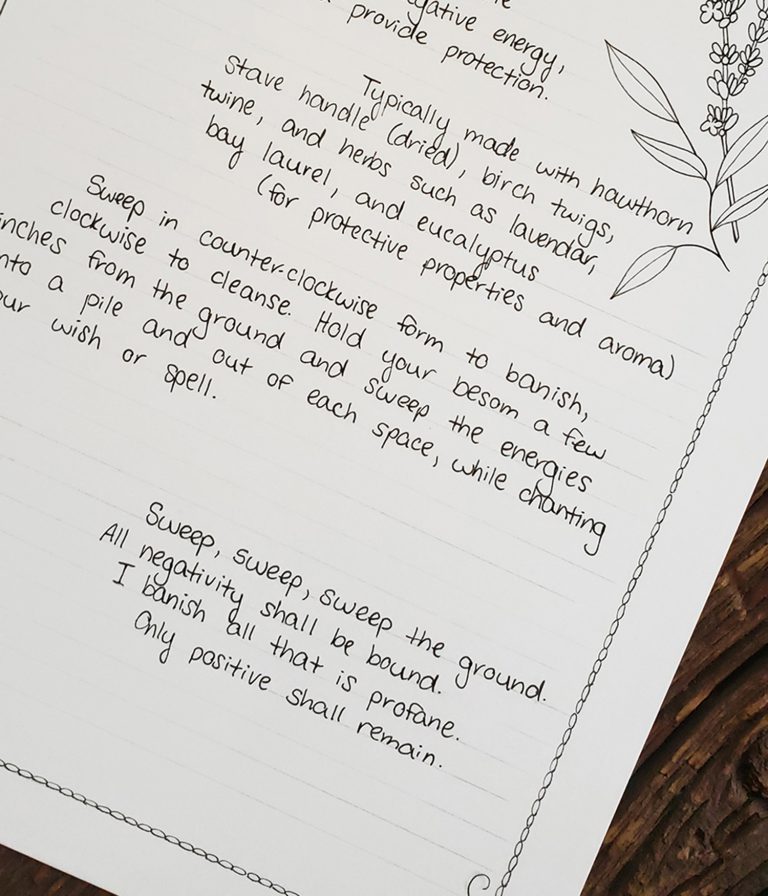 negative energy,
provide protection.
Typically made with hawthorn
stave handle (dried), birch twigs,
twine, and herbs such as lavendar,
bay laurel, and eucalyptus
(for protective properties and aroma)
Sweep in counter-clockwise form to banish,
clockwise to cleanse. Hold your besom a few
inches from the ground and sweep the energies
into a pile and out of each space, while chanting
your wish or spell.
Sweep, sweep, sweep the ground.
All negativity shall be bound.
I banish all that is profane.
Only positive shall remain.